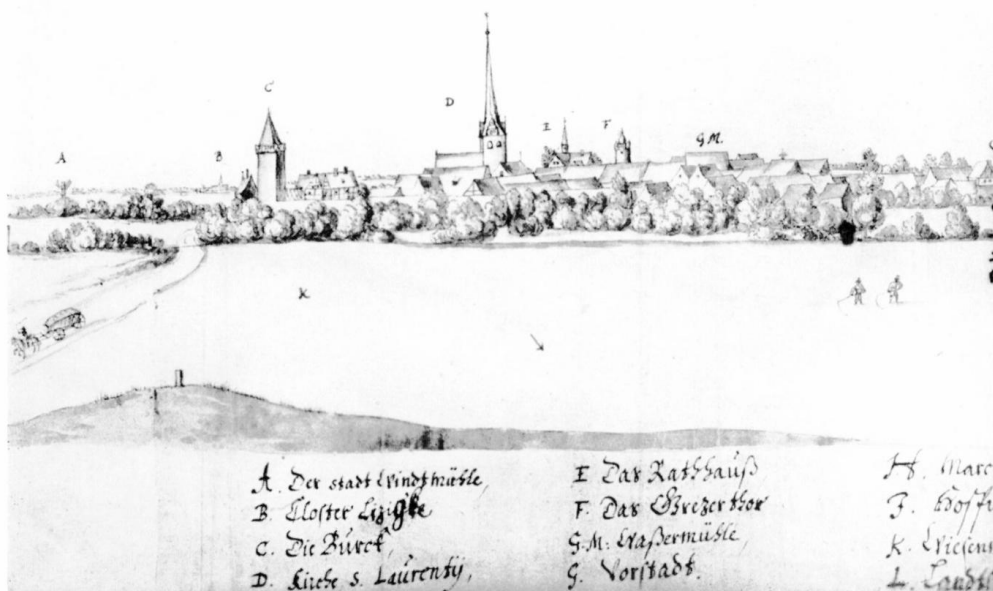 C
D
E
F
G.M.
A
B
K
A. Der stadt Windtmühle,
B. Closter
C. Die Burck,
D. Kirche S. Laurentÿ,
E Das Rathhauß
F. Das Grezerthor
G.M. Waßermühle,
G. Vorstadt.
H. Marc
J.
K. Wiesen
L. Landt